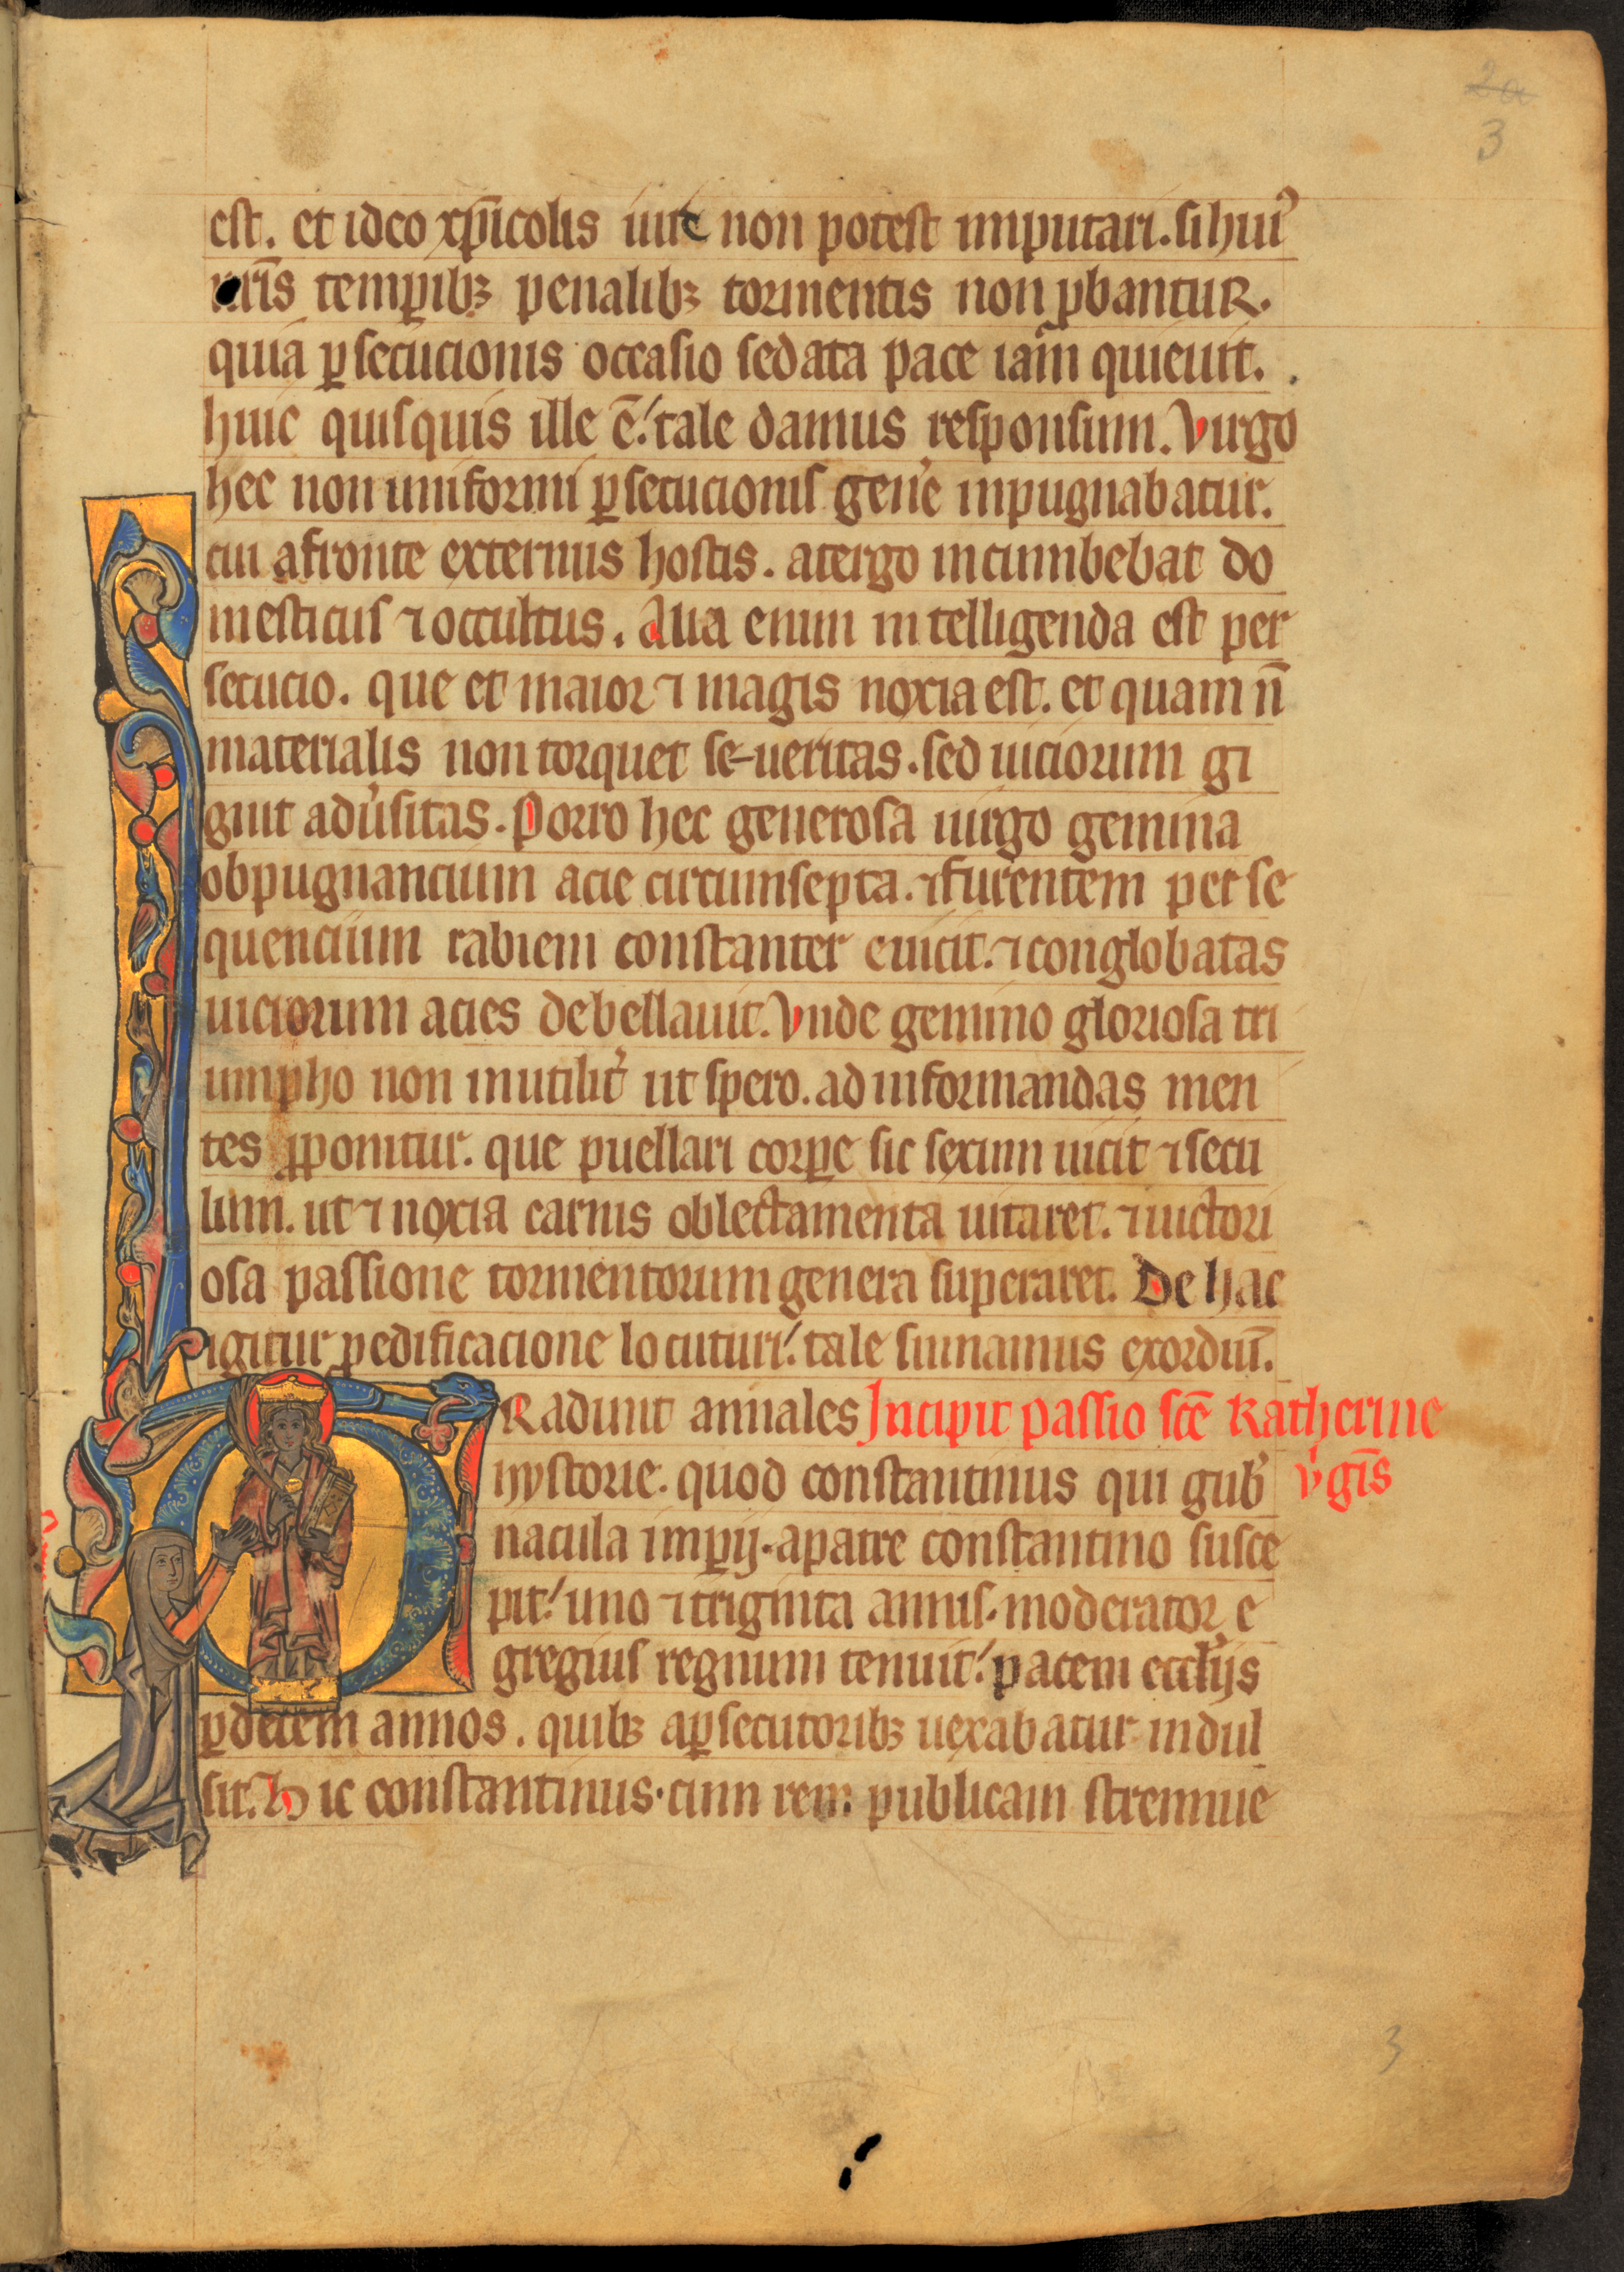 2a
3
est. et ideo xp̄icolis iure non potest imputari. si huiꝰ
nr̄is temꝑibꝫ penalibꝫ tormentis non ꝓbantuR.
quia ꝑsecucionis occasio sedata pace iam quieuit.
huic quisquis ille ē. tale damus responsum. Virgo
hec non uniformi ꝑsecucionis gen̾e inpugnabatur.
cui afronte externus hostis. atergo incumbebat do
mesticus ⁊ occultus. Alia enim intelligenda est per
secucio. que et maior ⁊ magis noxia est. et quam n̄
materialis non torquet se-ueritas. sed uiciorum gi
gnit adu̾sitas. Porro hec generosa uirgo gemina
obpugnancium acie circumsepta. ⁊ furentem perse
quencium rabiem constanter euicit. ⁊ conglobatas
uiciorum acies debellauit. Vnde gemino gloriosa tri
umpho non inutilit̾ ut spero. ad informandas men
tes ꝓponitur. que puellari corꝑe sic sexum uicit ⁊ secu
lum. ut ⁊ noxia carnis oblectamenta uitaret. ⁊ uictori
osa passione tormentorum genera superaret. De hac
igitur ꝓ edificacione locuturi. tale sumamus exordiū.
TRadunt annales Incipit passio sc̄e Katherine
hystorie. quod constantinus qui gub̾ v̾gīs
nacula imꝑij. apatre constantino susce
pit. uno ⁊ triginta annis. moderator e
gregius regnum tenuit. pacem eccl̾ijs
ꝑ decem annos. quibꝫ aꝑsecutoribꝫ uexabatur indul
sit. Hic constantinus. cum rem publicam strennue
3